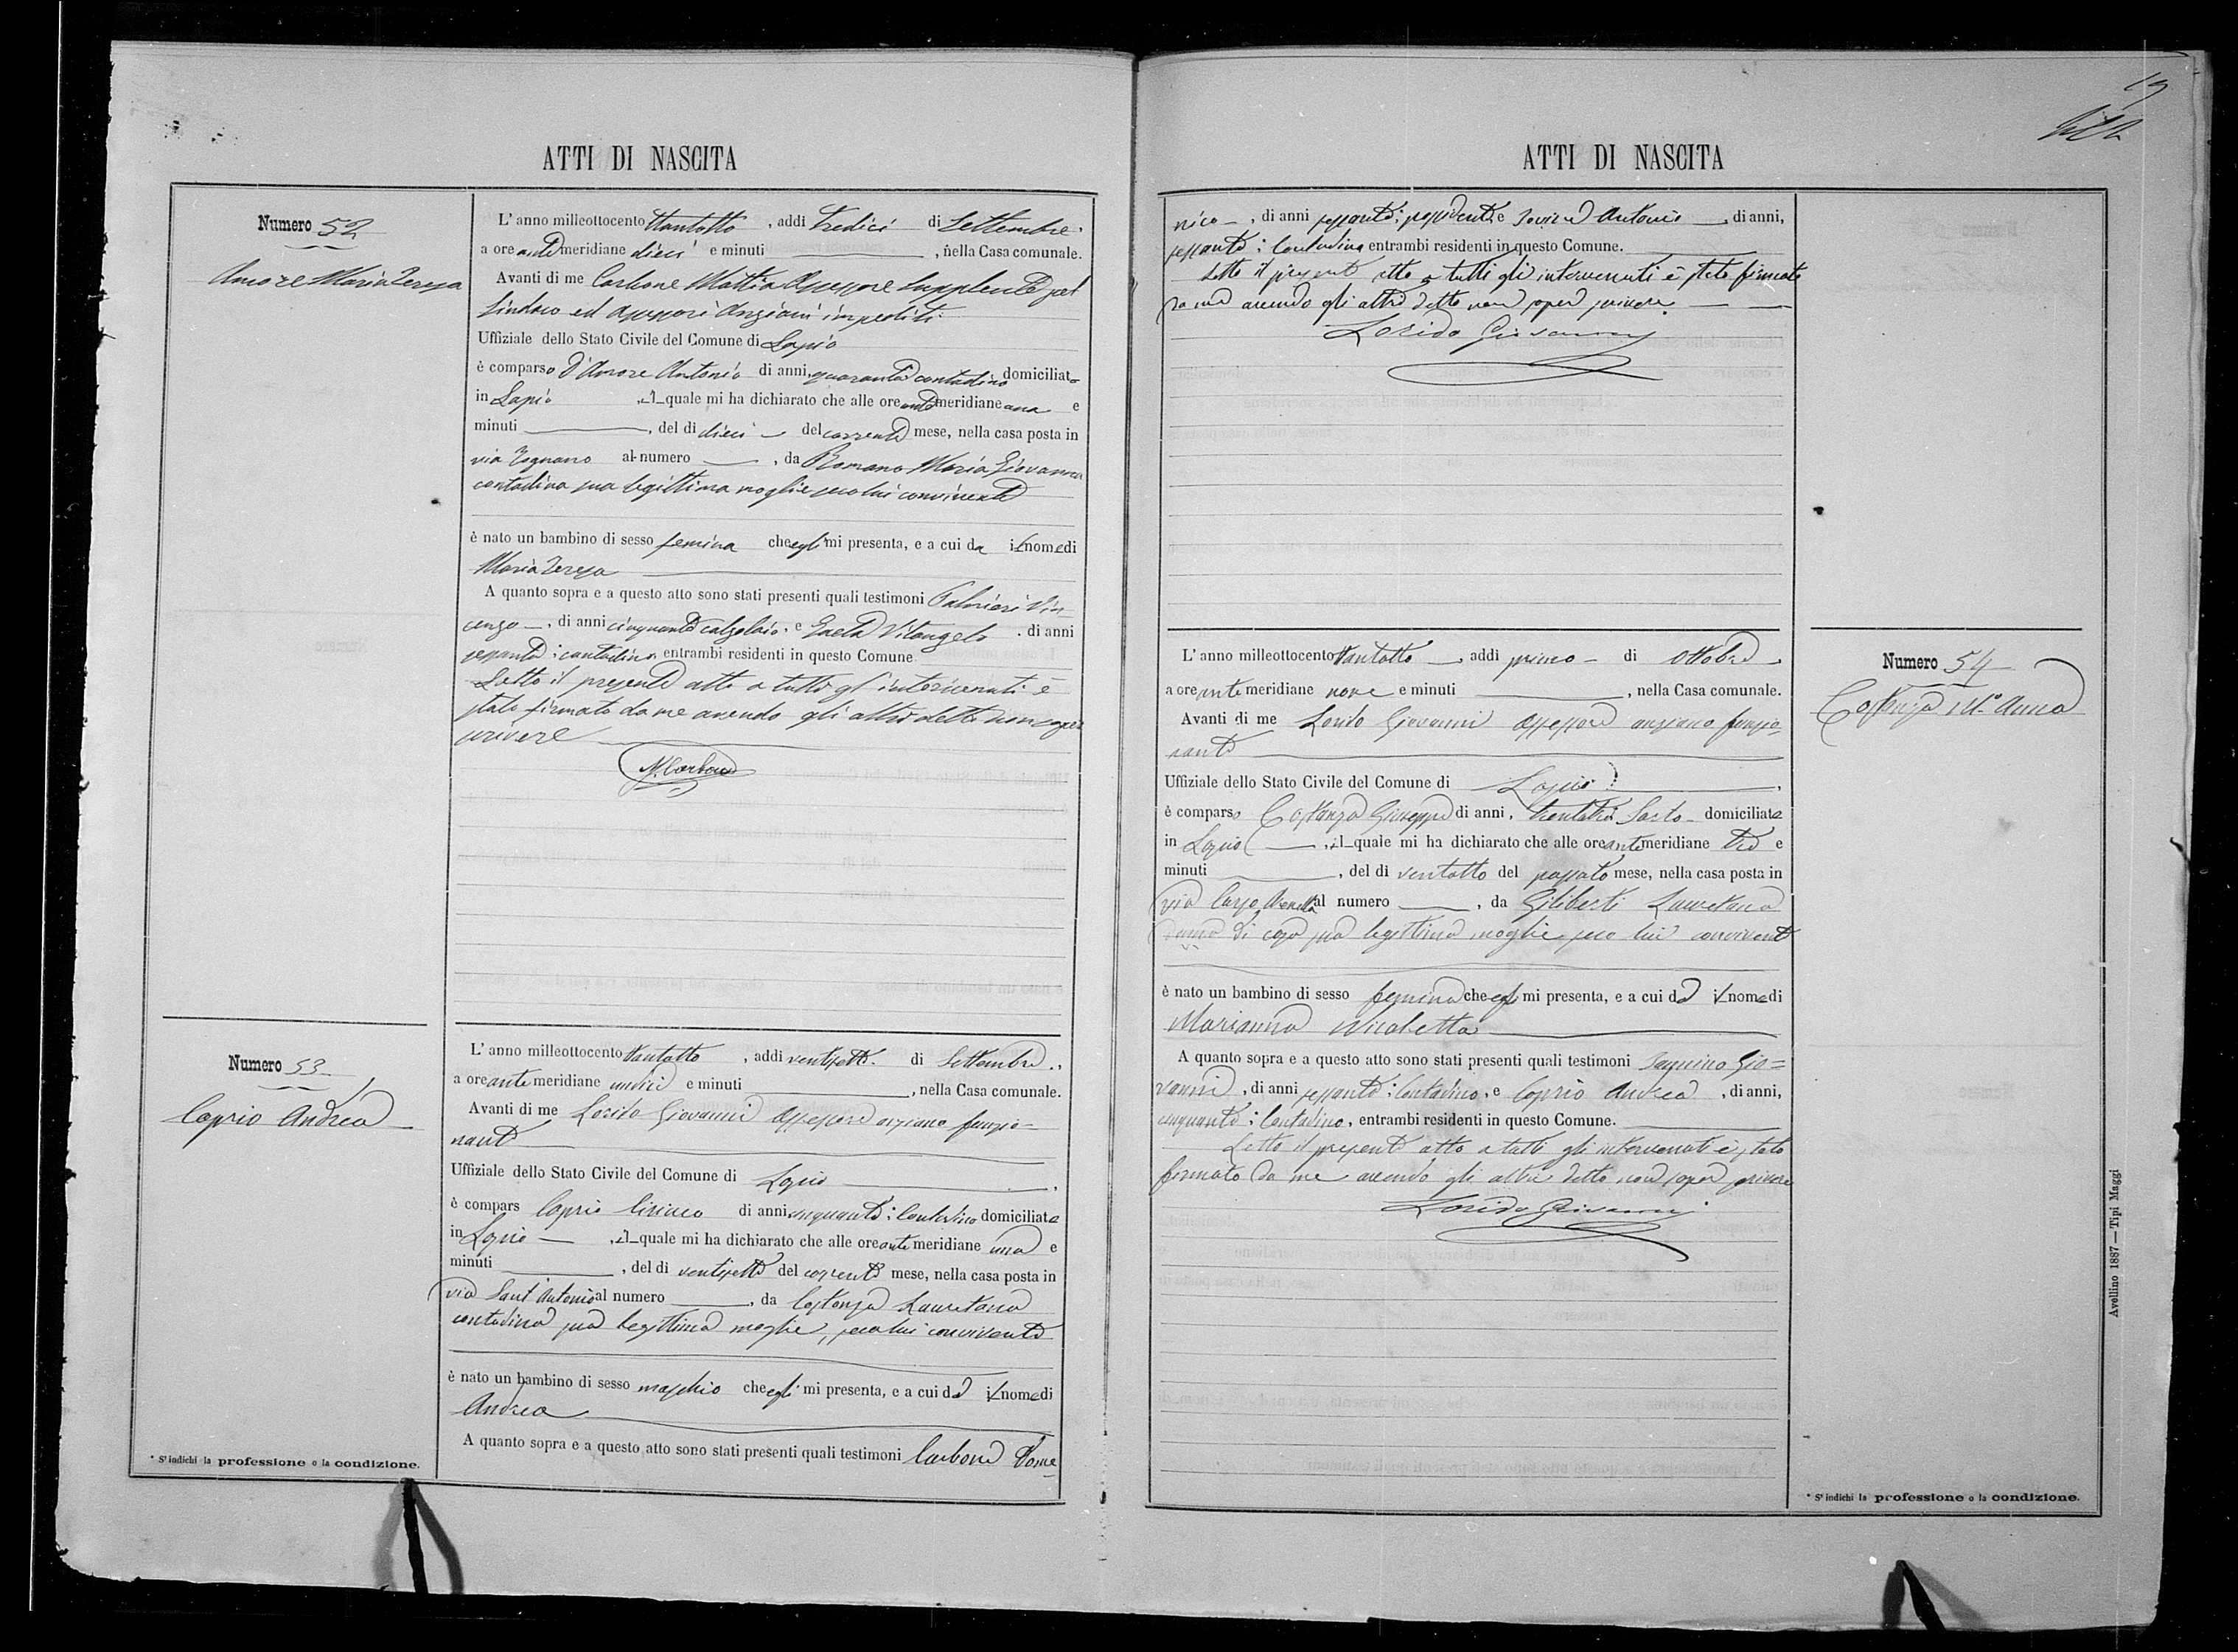 ATTI DI NASCITA
Numero 52
Amore Maria Teresa
L'anno milleottocento ttantotto, addì tredici di Settembre,
a ore antemeridiane dieci e minuti, nella Casa comunale.
Avanti di me Carbone Mattia Assessore Supplente pel
Sindaco ed assessori Anziani impediti
Uffiziale dello Stato Civile del Comune di Lapio
è comparso D'Amore Antonio di anni, quaranta contadino domiciliato
in Lapio, il quale mi ha dichiarato che alle ore antemeridiane una e
minuti, del dì dieci del corrente mese, nella casa posta in
via al numero, da Romano Maria Giovanna
contadina sua legittima moglie seco lui convivente
è nato un bambino di sesso femina che egli mi presenta, e a cui da il nome di
Maria Teresa
A quanto sopra e a questo atto sono stati presenti quali testimoni Palmieri Vin
cenzo, di anni cinquanta calzolaio, e Gaeta Vitangelo, di anni
sessanta; contadino, entrambi residenti in questo Comune.
Letto il presente atto a tutti gl'intervenuti è
stato firmato da me avendo gli altri detto non saper
scrivere
M. Carbone
Numero 53
Caprio Andrea
L'anno milleottocento ttantotto, addì ventisette di Settembre,
a ore antemeridiane undici e minuti, nella Casa comunale.
Avanti di me Lorido Giovanni Assessore anziano funzio=
nante
Uffiziale dello Stato Civile del Comune di Lapio,
è compars Caprio Ciriaco di anni cinquanta; Contadino domiciliato
in Lapio, il quale mi ha dichiarato che alle ore antemeridiane una e
minuti, del dì ventisette del corrente mese, nella casa posta in
via Sant'Antonio al numero, da Costanza Lauretana
contadina sua legittima moglie, seco lui convivente
è nato un bambino di sesso maschio che egli mi presenta, e a cui da il nome di
Andrea
A quanto sopra e a questo atto sono stati presenti quali testimoni Carbone Dome
* Si indichi la professione o la condizione.
ATTI DI NASCITA
nico, di anni sessanta; possidente e Antonio, di anni,
sessanta; Contadino entrambi residenti in questo Comune.
Letto il presente atto a tutti gli intervenuti è stato firmato
da me avendo gli altri detto non saper scrivere.
Lorido Giovanni
Numero 54
Costanza Mª Anna
L'anno milleottocento ttantotto, addì primo di Ottobre,
a ore antemeridiane nove e minuti, nella Casa comunale.
Avanti di me Lorido Giovanni Assessore anziano funzio,
nante
Uffiziale dello Stato Civile del Comune di Lapio,
è comparso Costanza Giuseppe di anni, trentatre Sarto domiciliato
in Lapio, il quale mi ha dichiarato che alle ore antemeridiane tre e
minuti, del dì ventotto del passato mese, nella casa posta in
via Largo al numero, da Giliberti Lauretana
donna di casa sua legittima moglie seco lui convivente
è nato un bambino di sesso femina che egli mi presenta, e a cui da il nome di
Marianna Nicoletta
A quanto sopra e a questo atto sono stati presenti quali testimoni Gio=
vanni, di anni sessanta; Contadino, e Caprio Andrea, di anni,
cinquanta; Contadino, entrambi residenti in questo Comune.
Letto il presente atto a tutti gli intervenuti è stato
firmato da me avendo gli altri detto non saper scrivere
Lorido Giovanni
* Si indichi la professione o la condizione.
Avellino 1887 — Tipi Maggi